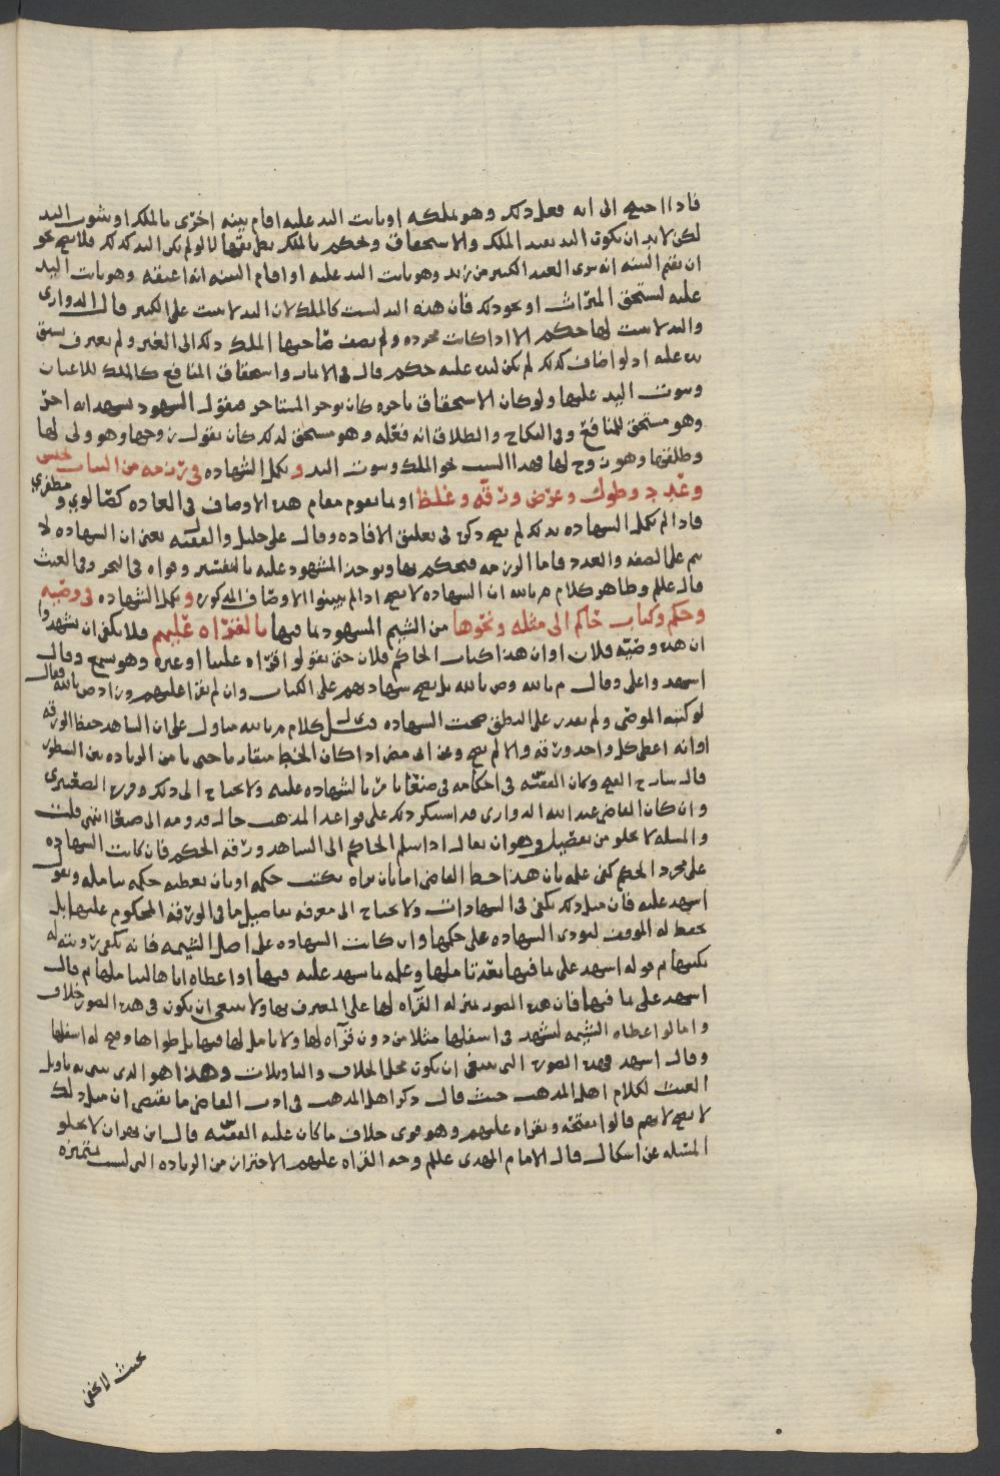 فاذا احتيج الى انه فعل ذلك وهو يملكه او ثابت اليد عليه اقام بينه اخرى بالملك او ثبوت اليد
لكن لابد ان يكون اليد يفيد الملك والاستحقاق ويحكم بالملك بطريقها لا لو لم يكن اليد كذلك فلا يصح نحو
ان يقيم البينه انه شرى العبد الكبير من زيد وهو ثابت اليد عليه او اقام البينه انه اعتقه وهو ثابت اليد
عليه ليستحق الميراث او نحو ذلك فان هذه اليد ليست كالملك لان اليد لا تثبت على الكبير قال الدواري
واليد لا يثبت لها حكم الا اذا كانت مجرده ولم يضف صاحبها الملك ذلك الى الغير ولم يعرف سبق
يد عليه اذ لو اضاف كذلك لم يكن ليده عليه حكم قال في الاثمار واستحقاق المنافع كالملك للاعيان
وثبوت اليد عليها ولو كان الاستحقاق باجره كان يوجر المستاجر فيقول الشهود نشهد انه اجر
وهو مستحق للمنافع وفي النكاح والطلاق انه فعله وهو مستحق لذلك كان يقول زوجها وهو ولي لها
وطلقها وهو زوج لها فهذا ليس نحو الملك وثبوت اليد وتكمل الشهاده في رزمه من الثياب بجنس
وعدد وطول وعرض ورقه وغلظ او ما يقوم مقام هذه الاوصاف في العاده كصالوي ومظفري
فاذا لم تكمل الشهاده بذلك لم يصح ذكره في تعليق الافاده وقال علي خليل والفقيه ل يعني ان الشهاده لا
تتم على الصفه والعدد فاما الرزمه فيحكم بها ويوخذ المشهود عليه بالتفسير وقواه في البحر وفي الغيث
قال علم وظاهر كلام م بالله ان الشهاده لا تصح اذا لم يبينوا الاوصاف المذكوره وتكمل الشهاده في وصيه
وحكم وكتاب حاكم الى مثله ونحوها من الشيم المشهود بما فيها بالقراه عليهم فلا يكفي ان يشهدوا
ان هذه وصيه فلان او ان هذا كتاب الحاكم فلان حتى يقولوا اقراه علينا او غيره وهو يسمع وقال
اشهدوا علي وقال م بالله وص بالله بل تصح شهادتهم على الكتاب وان لم يقرا عليهم وزاد ص بالله فقال
لو كتبه الموصي ولم يقدر على النطق صحت الشهاده قيل ل كلام م بالله متاول على ان الشاهد حفظ الورقه
او انه اعطى كل واحد ورقه والا لم يصح وعن ابي مضر اذا كان الخط متقاربا حتى يامن الزياده بين السطور
قال شارح الفتح وكان الفقيه س في احكامه في صنعا يامر بالشهاده عليه ولا يحتاج الى ذلك وقرره الصعيتري
وان كان القاضي عبد الله الدواري قد استنكر ذلك على قواعد المذهب حال قدومه الى صنعا انتهى قلت
والمسله لا تخلو من تفصيل وهو ان يقال اذا سلم الحاكم الى الشاهد ورقه الحكم فان كانت الشهاده
على مجرد الحكم كفى علمه بان هذا خط القاضي اما بان يراه يكتب حكمه او بان يعطيه حكمه يتامله ويقول
اشهد عليه فان مثل ذلك يكفي في الشهادات ولا يحتاج الى معرفه تفاصيل ما في الورقه المحكوم عليها بل
يحفظ له الموقت ليودي الشهاده على حكمها وان كانت الشهاده على اصل الشيمه فانه يكفي رويته له
يكتبها ثم قوله اشهد على ما فيها بعد تاملها وعلمه ما يشهد عليه فيها او اعطاه اياها ليتاملها ثم قال
اشهد على ما فيها فان هذه الصور بمنزله القراه لها على المعترف بها ولا ينبغي ان يكون في هذه الصور خلاف
واما لو اعطاه الشيمه ليشهد في اسفلها مثلا من دون قراه لها ولا تامل لها فيها بل طواها وفتح له اسفلها
وقال اشهد فهذه الصوره التي ينبغي ان يكون محل الخلاف والتاويلات وهذا هو الذي
الغيث لكلام اهل المذهب حيث قال ذكر اهل المذهب في ادب القاضي ما يقتضي ان مثل ذلك
لا يصح لانهم قالوا يفتحه ويقراه عليهم وهو قوي خلاف ما كان عليه الفقيه س قال ابن بهران لا تخلو
المسئله عن اشكال قال الامام المهدي علم وجه القراه عليهم الاحتراز من الزياده التي ليست بمتميزه
بحث لا يخفى